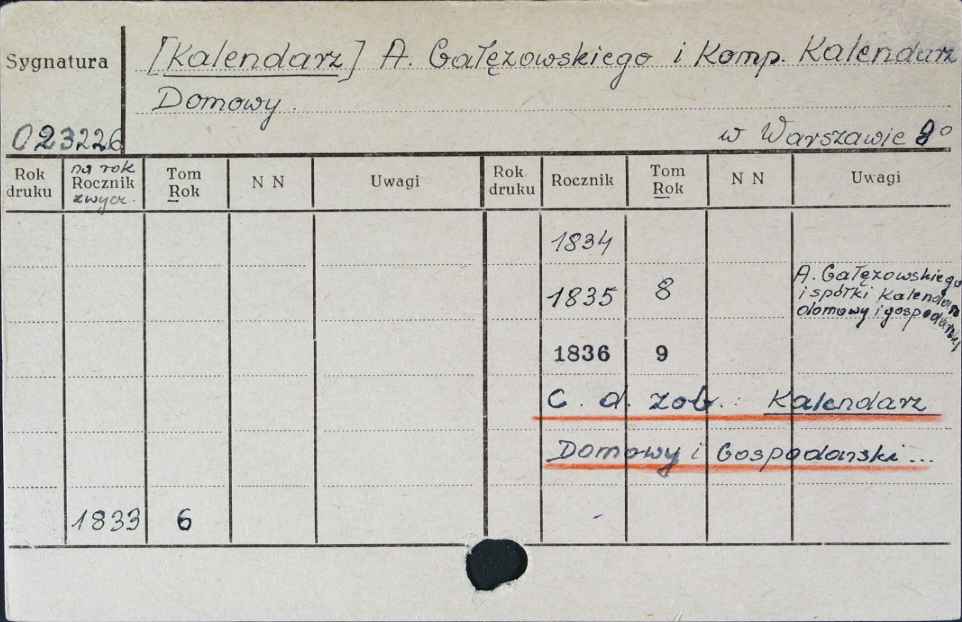 Sygnatura
[Kalendarz] A. Gałęzowskiego i Komp. Kalendarz
Domowy.
023226
w Warszawie 8°
Rok druku
na rok Rocznik zwycz.
Tom Rok
N N
Uwagi
Rok druku
Rocznik
Tom Rok
N N
Uwagi
1834
1835 8 A. Gałęzowskiego
i spółki Kalendarz
domowy i gospodarski
1836 9
C. d. zob.: Kalendarz
Domowy i Gospodarski...
1833 6